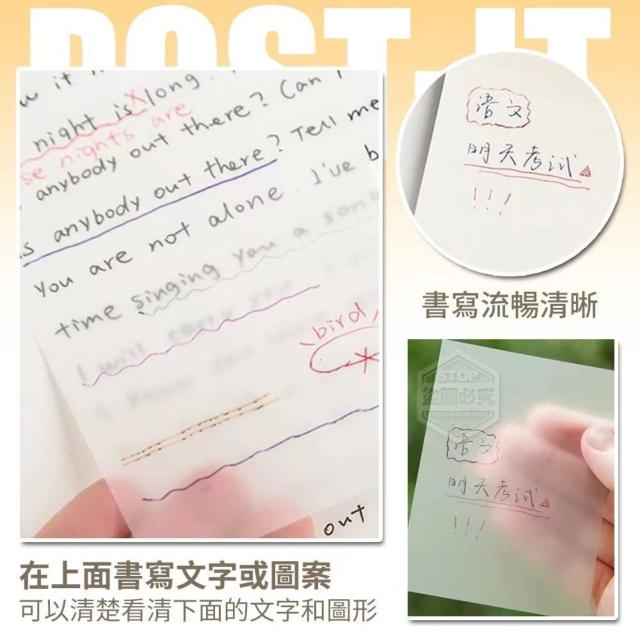 POST-IT
night is long.
se nights are
anybody out there? Can I
s anybody out there? Tell me
you are not alone. I've b
time singing you a song
I will carry you
bird
out
语文
明天考试
!!!
書寫流暢清晰
STOP
盜圖必究
语文
明天考试
!!!
在上面書寫文字或圖案
可以清楚看清下面的文字和圖形